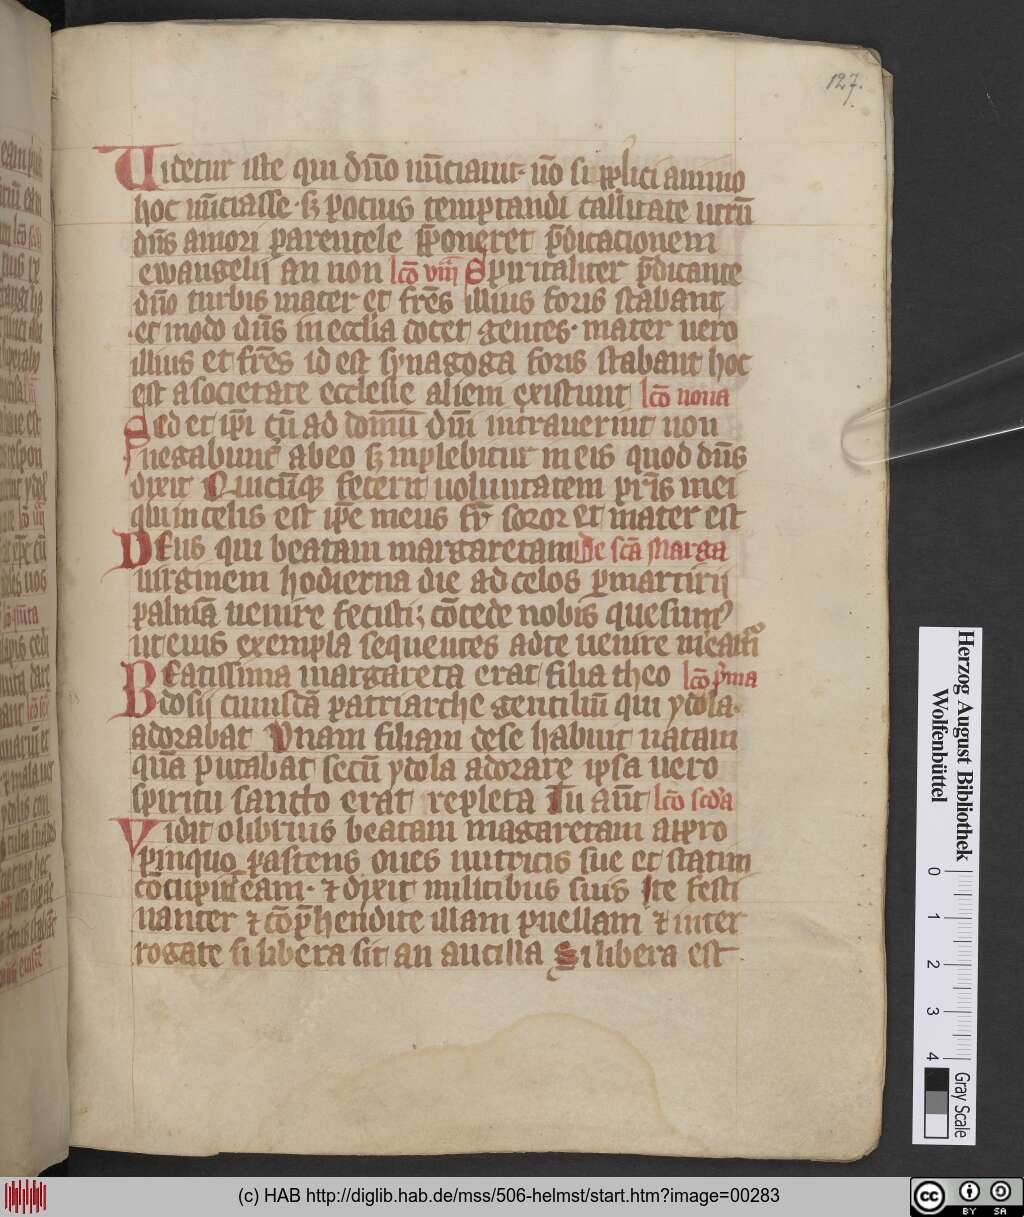 127.
Uidetur iste qui dn̄o nu̅ciauit· no̅ simplici animo
hoc nu̅ciasse· sꝫ pocius temptandi calliditate utru̅
dn̅s amori parentele p̅poneret p̅dicacionem
ewangelii an non lc̅o viii Spiritaliter p̅dicante
dn̅o turbis mater et fr̅es illius foris stabant
et modo dn̅s in ecclīa docet gentes· mater uero
illius et fr̅es id est synagoga foris stabant hoc
est a societate ecclesie aliem existunt lc̅o nona
Sed et ip̅i cu̅ ad domu̅ dn̅i intrauerint non
negabunt̉ ab eo sꝫ inplebitur in eis quod dn̅s
dixit Quicu̅qꝫ fecerit uoluntatem pr̅is mei
qui in celis est ip̅e meus fr̅ soror et mater est
Deus qui beatam margaretam De sc̅a Marga
uirginem hodierna die ad celos p martirii
palma̅ uenire fecisti; co̅cede nobis quesum᷒
ut eius exempla sequentes ad te uenire meamr᷑
Beatissima margareta erat filia theo lc̅o p̅ma
dosii cuiusda̅ patriarche gentiliu̅ qui ydola
adorabat Vnam filiam de se habuit natam
qua̅ putabat secu̅ ydola adorare ipsa uero
spiritu sancto erat repleta Tu aut̅ lc̅o scd̅a
Vidit olibrius beatam magaretam appro
pinquo pascens oues nutricis sue et statim
co̅cupiit eam· ⁊ dixit militibus suis Ite festi
nanter ⁊ co̅p̅hendite illam puellam ⁊ inter
rogate si libera sit an ancilla Si libera est
Herzog August Bibliothek
Wolfenbüttel
0 1 2 3 4
Gray Scale
(c) HAB http://diglib.hab.de/mss/506-helmst/start.htm?image=00283
cc BY SA